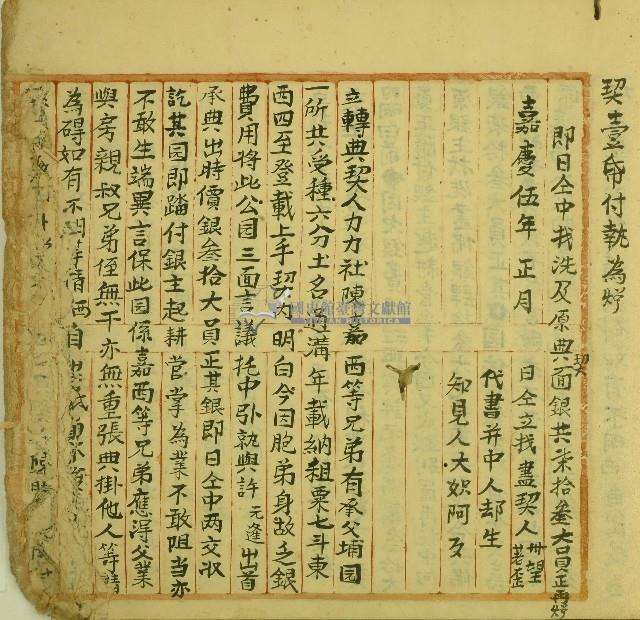 契壹帋付執為炤
即日仝中找洗及原典契面銀共柒拾叁大員正再炤
嘉慶伍年正月 日仝立找盡契人 卅望 若歪
代書并中人却生
知見人大娘阿歹
立轉典契人力力社陳嘉西等兄弟有承父埔园
一所共受種六分土名溝年載納租粟七斗東
西四至登載上手契內明白今因胞弟身故乏銀
費用將此公园三面言議托中引就與許元逢出首
承典出時價銀叁拾大員正其銀即日仝中两交收
訖其园即踏付銀主起耕管掌為業不敢阻当亦
不敢生端異言保此园係嘉西等兄弟應得父業
與房親叔兄弟侄無干亦無重張典掛他人等情
為碍如有不明等情西自
國史館臺灣文獻館
TAIWAN HISTORICA